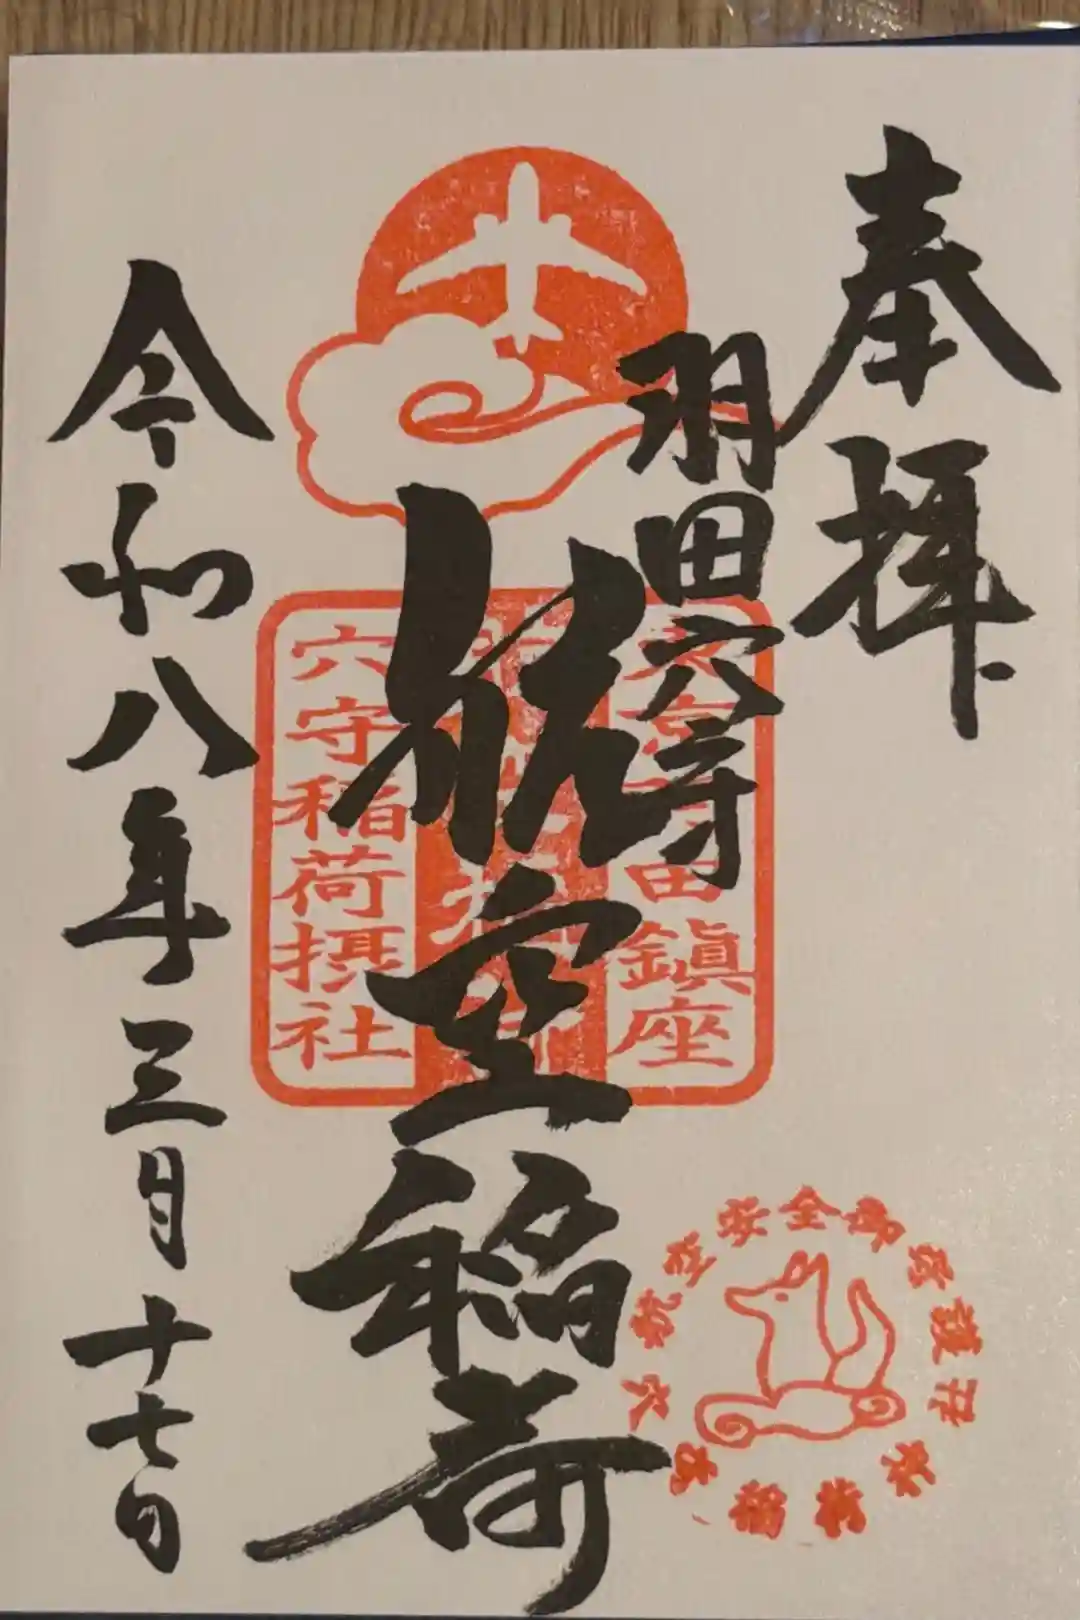 奉拝
羽田穴守
佐空稲荷
令和八年三月十七日
鎮座
穴守稲荷摂社